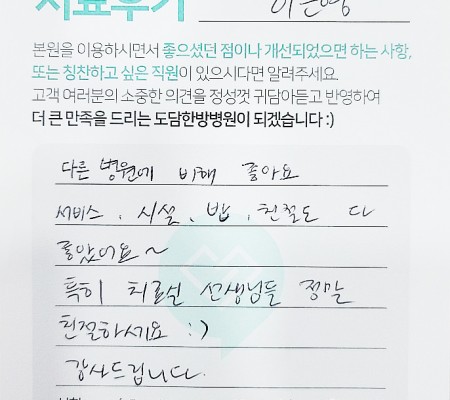 치료후기
본원을 이용하시면서 좋으셨던 점이나 개선되었으면 하는 사항,
또는 칭찬하고 싶은 직원이 있으시다면 알려주세요.
고객 여러분의 소중한 의견을 정성껏 귀담아듣고 반영하여
더 큰 만족을 드리는 도담한방병원이 되겠습니다 :)
다른 병원에 비해 좋아요
서비스, 시설, 밥, 친절도 다
좋았어요~
특히 치료실 선생님들 정말
친절하세요 :)
감사드립니다.